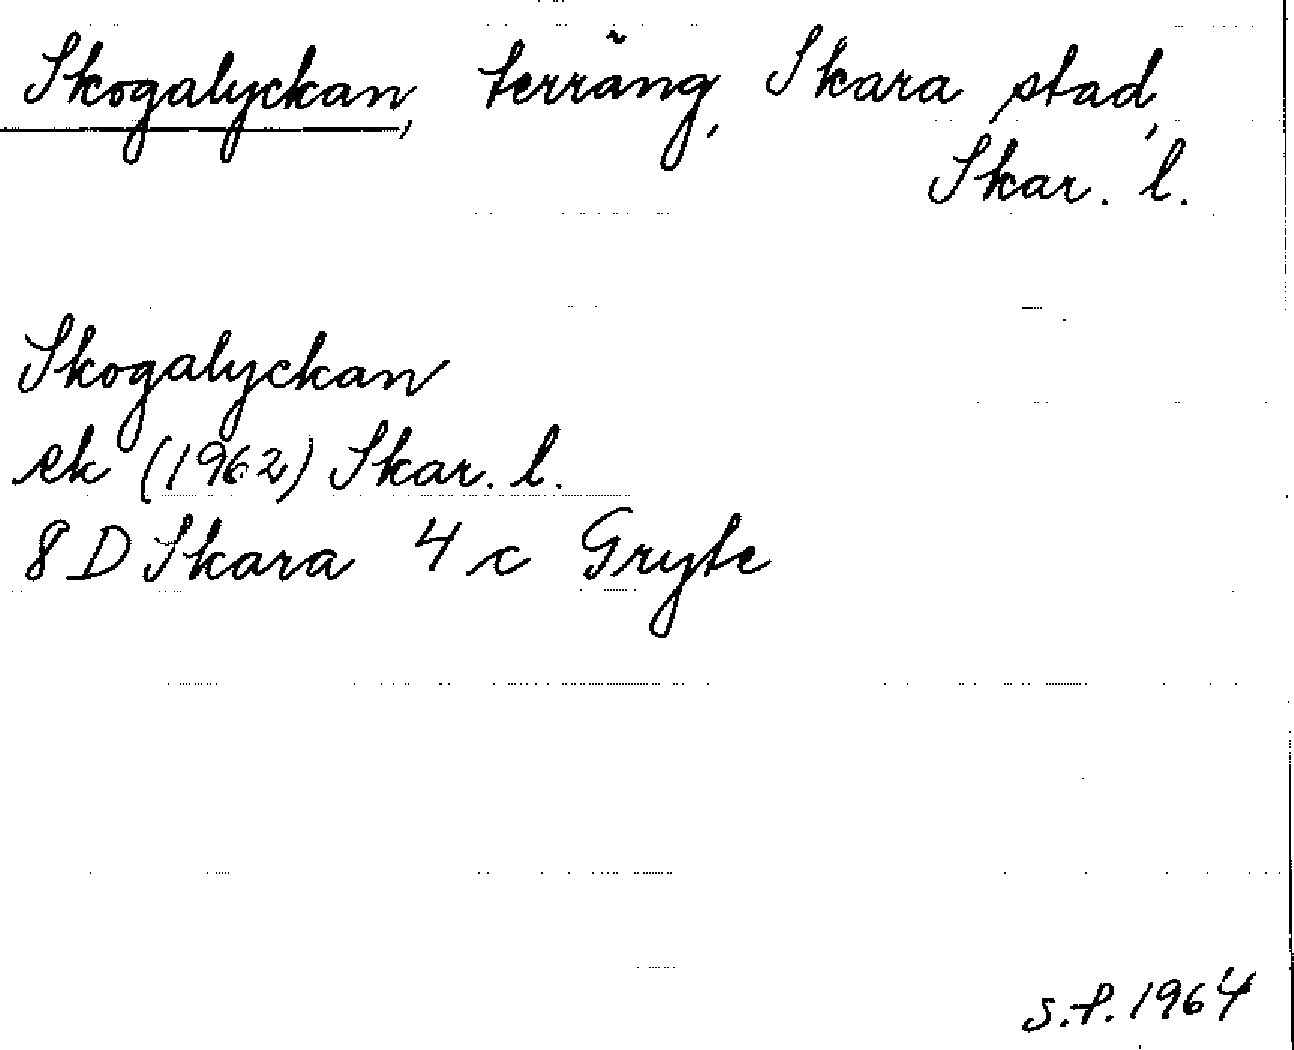 Skogalyckan, terräng, Skara stad,
Skar. l.
Skogalyckan
ek (1962) Skar. l.
8 D Skara 4 c Gryte
S.P. 1964